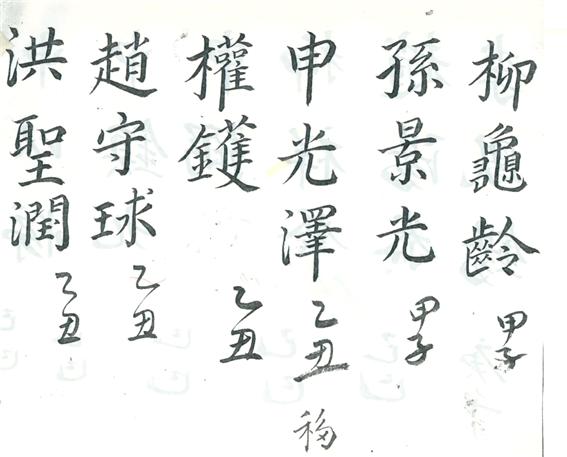 柳龜齡 甲子
孫景光 甲子
申光澤 乙丑 移
權鑊 乙丑
趙守球 乙丑
洪聖潤 乙丑